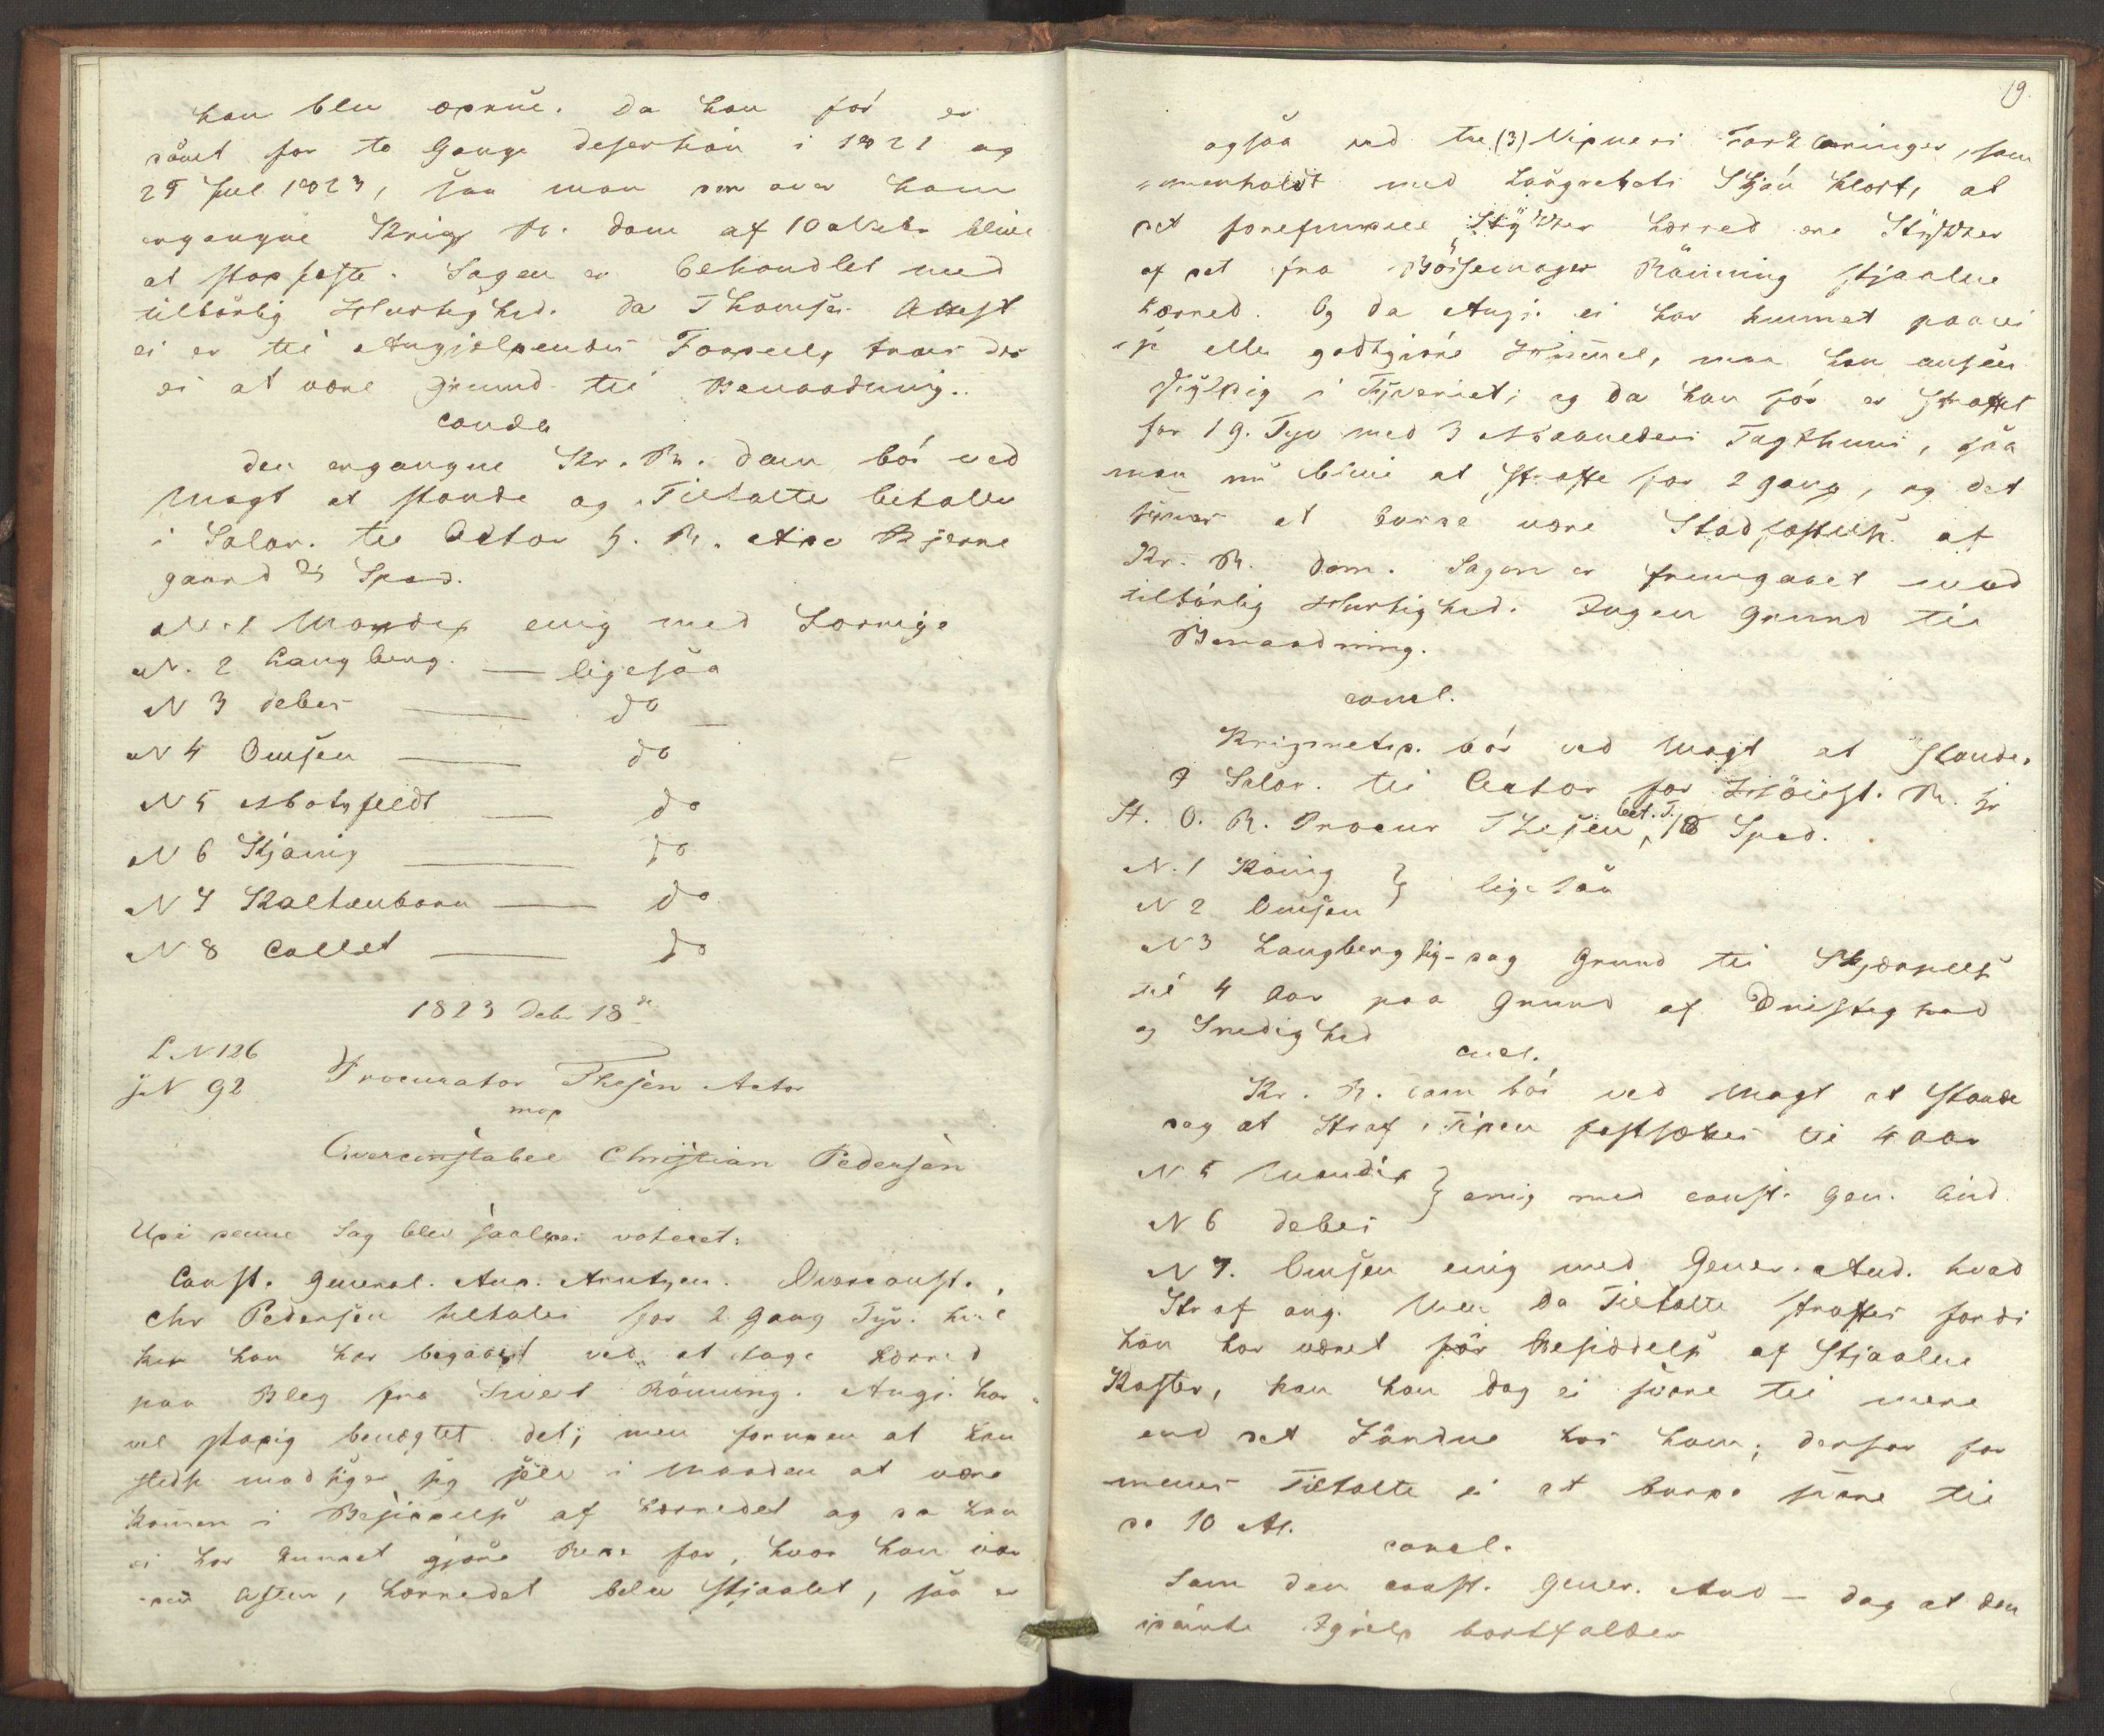 han blev dømt. Da han før er
dømt for to Gange Desertion i 1821 og
25 Jul 1823, saa maa den over ham
ergangne Krigs R. Dom af 10 Octbr blive
at stadfæste. Sagen er behandlet med
tilbørlig Hurtighed. Da Thomsens Attest
ei er til Angjældendes Fordeel, troes der
ei at være Grund til Benaadning.
concl.
Den ergangne Kr. R. Dom bør ved
Magt at stande og Tiltalte betaler
i Salar. til Actor H. R. Adv Bjerre
gaard 25 Spd.
N. 1 Mandix enig med Forrige
N. 2 Langberg — ligesaa
N 3 Debes — do —
N 4 Omsen — do
N 5 Motzfeldt — do
N 6 Kjønig — do
N 7 Kaltenborn — do
N 8 Collet — do
1823 Debr 18de
L. N 126
j N 92
Procurator Thesen Actor
mod
Overconstabel Christian Pedersen
Udi denne Sag blev saaledes voteret:
Const. General. Aud. Arntzen. Overconst.
Chr Pedersen tiltales for 2 Gang Tyv. hvil
ket han har begaaet ved at tage Lærred
paa Bleg fra Sivert Rönning. Angj. har
vel stadig benægtet det; men formeden at han
stedse modsiger sig selv i Maaden at være
kommen i Besiddelse af Lærredet og da han
ei har kunnet gjøre Rede for, hvor han var
den Aften, Lærredet blev stjaalet, saa er
19.
ogsaa ved tre (3) Vidners Forklaringer, som
sammenholdt med Laugrettets Skjøn klart, at
det forefundne Stykker Lærred ere Stykker
af det fra Bössemager Rönning stjaalne
Lærred. Og da Angj. ei har kunnet paavi
se eller godtgiøre Hiemmel, maa han ansees
skyldig i Tyveriet; og da han før er straffet
for 1 g. Tyv med 3 Maaneders Tugthuus, saa
maa nu blive at straffe for 2 Gang, og det
synes at burde være Stadfæstelse af
Kr. R. Dom. Sagen er fremgaaet med
tilbørlig Hurtighed. Ingen Grund til
Benaadning.
concl.
Krigsretsd. bør ved Magt at stande.
I Salar. til Actor for Høiest. R. Hr
St. O. R. Procur Thesen, bet. T. 18 Spd.
N. 1 König } ligesaa
N 2 Omsen
N 3 Langberg lig- dog Grund til Skjærpelse
til 4 Aar paa Grund af Dristighed
og Snedighed
concl.
Kr. R. Dom bør ved Magt at stande
dog at Straf Tiden fastsættes til 4 Aar
N 5 Mandix } enig med const. Gen. Aud.
N 6 Debes
N 7. Omsen enig med Gener. Aud. hvad
Straf ang. Men da Tiltalte straffes fordi
han har været for Besiddelse af Stjaalne
Koster, kan han dog ei svare til mere
end det Fundne hos ham; derfor for
menes Tiltalte ei at burde svare til
de 10 Al.
concl.
Som den const. Gener. Aud — dog at den
idømte bortfalder